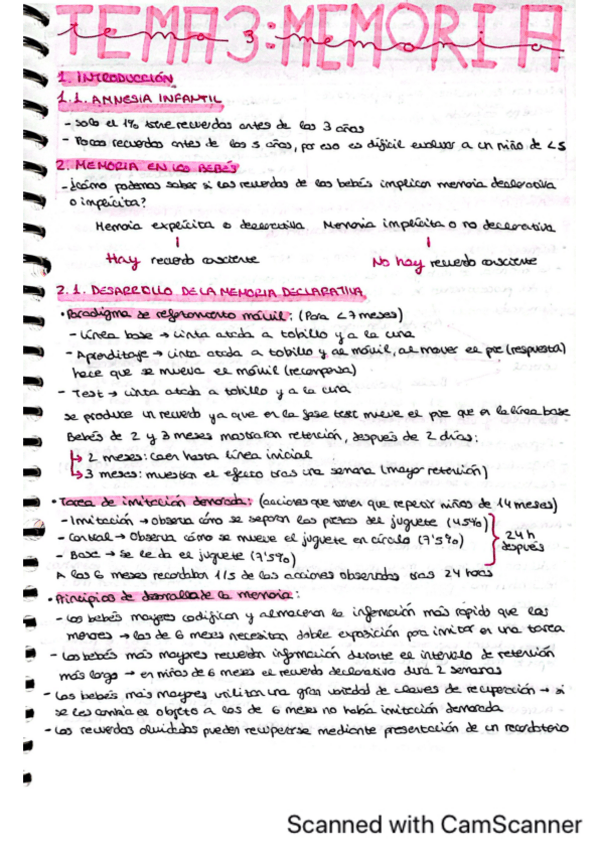 TEMA 3: MEMORIA
tema 3 memoria
1. INTRODUCCIÓN
1.1. AMNESIA INFANTIL
- Solo el 1% tiene recuerdos antes de los 3 años
- Pocos recuerdos antes de los 5 años, por eso es difícil evaluar a un niño de <5
2. MEMORIA EN LOS BEBÉS
- ¿Cómo podemos saber si los recuerdos de los bebés implican memoria declarativa
o implícita?
Memoria explícita o declarativa Memoria implícita o no declarativa
Hay recuerdo consciente No hay recuerdo consciente
2.1. DESARROLLO DE LA MEMORIA DECLARATIVA
• Paradigma de reforzamiento móvil: (Para <7 meses)
- Línea base → cinta atada a tobillo y a la cuna
- Aprendizaje → cinta atada a tobillo y al móvil, al mover el pie (respuesta)
hace que se mueva el móvil (recompensa)
- Test → cinta atada a tobillo y a la cuna
se produce un recuerdo ya que en la fase test mueve el pie que en la línea base
Bebés de 2 y 3 meses mostraron retención, después de 2 días:
↳ 2 meses: caen hasta línea inicial
↳ 3 meses: muestran el efecto tras una semana (mayor retención)
• Tarea de imitación demorada: (acciones que tienen que repetir niños de 14 meses)
- Imitación → Observa cómo se separan las piezas del juguete (45%)
- Control → Observa cómo se mueve el juguete en círculo (7'5%)
- Base → Se le da el juguete (7'5%)
24 h después
A los 6 meses recordaban 1/5 de las acciones observadas tras 24 horas
• Principios de desarrollo de la memoria:
- Los bebés mayores codifican y almacenan la información más rápido que los
menores → los de 6 meses necesitan doble exposición para imitar en una tarea
- Los bebés más mayores recuerdan información durante el intervalo de retención
más largo → en niños de 6 meses el recuerdo declarativo dura 2 semanas
- Los bebés más mayores utilizan una gran variedad de claves de recuperación → si
se les cambia el objeto a los de 6 meses no había imitación demorada
- Los recuerdos olvidados pueden recuperarse mediante presentación de un recordatorio
Scanned with CamScanner